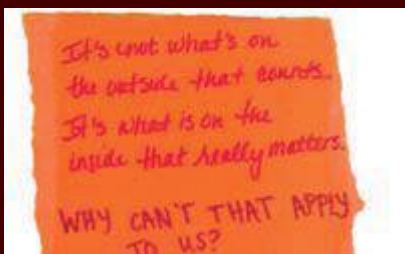 It's not what's on
the outside that counts.
It's what is on the
inside that really matters.
WHY CAN'T THAT APPLY
TO US?